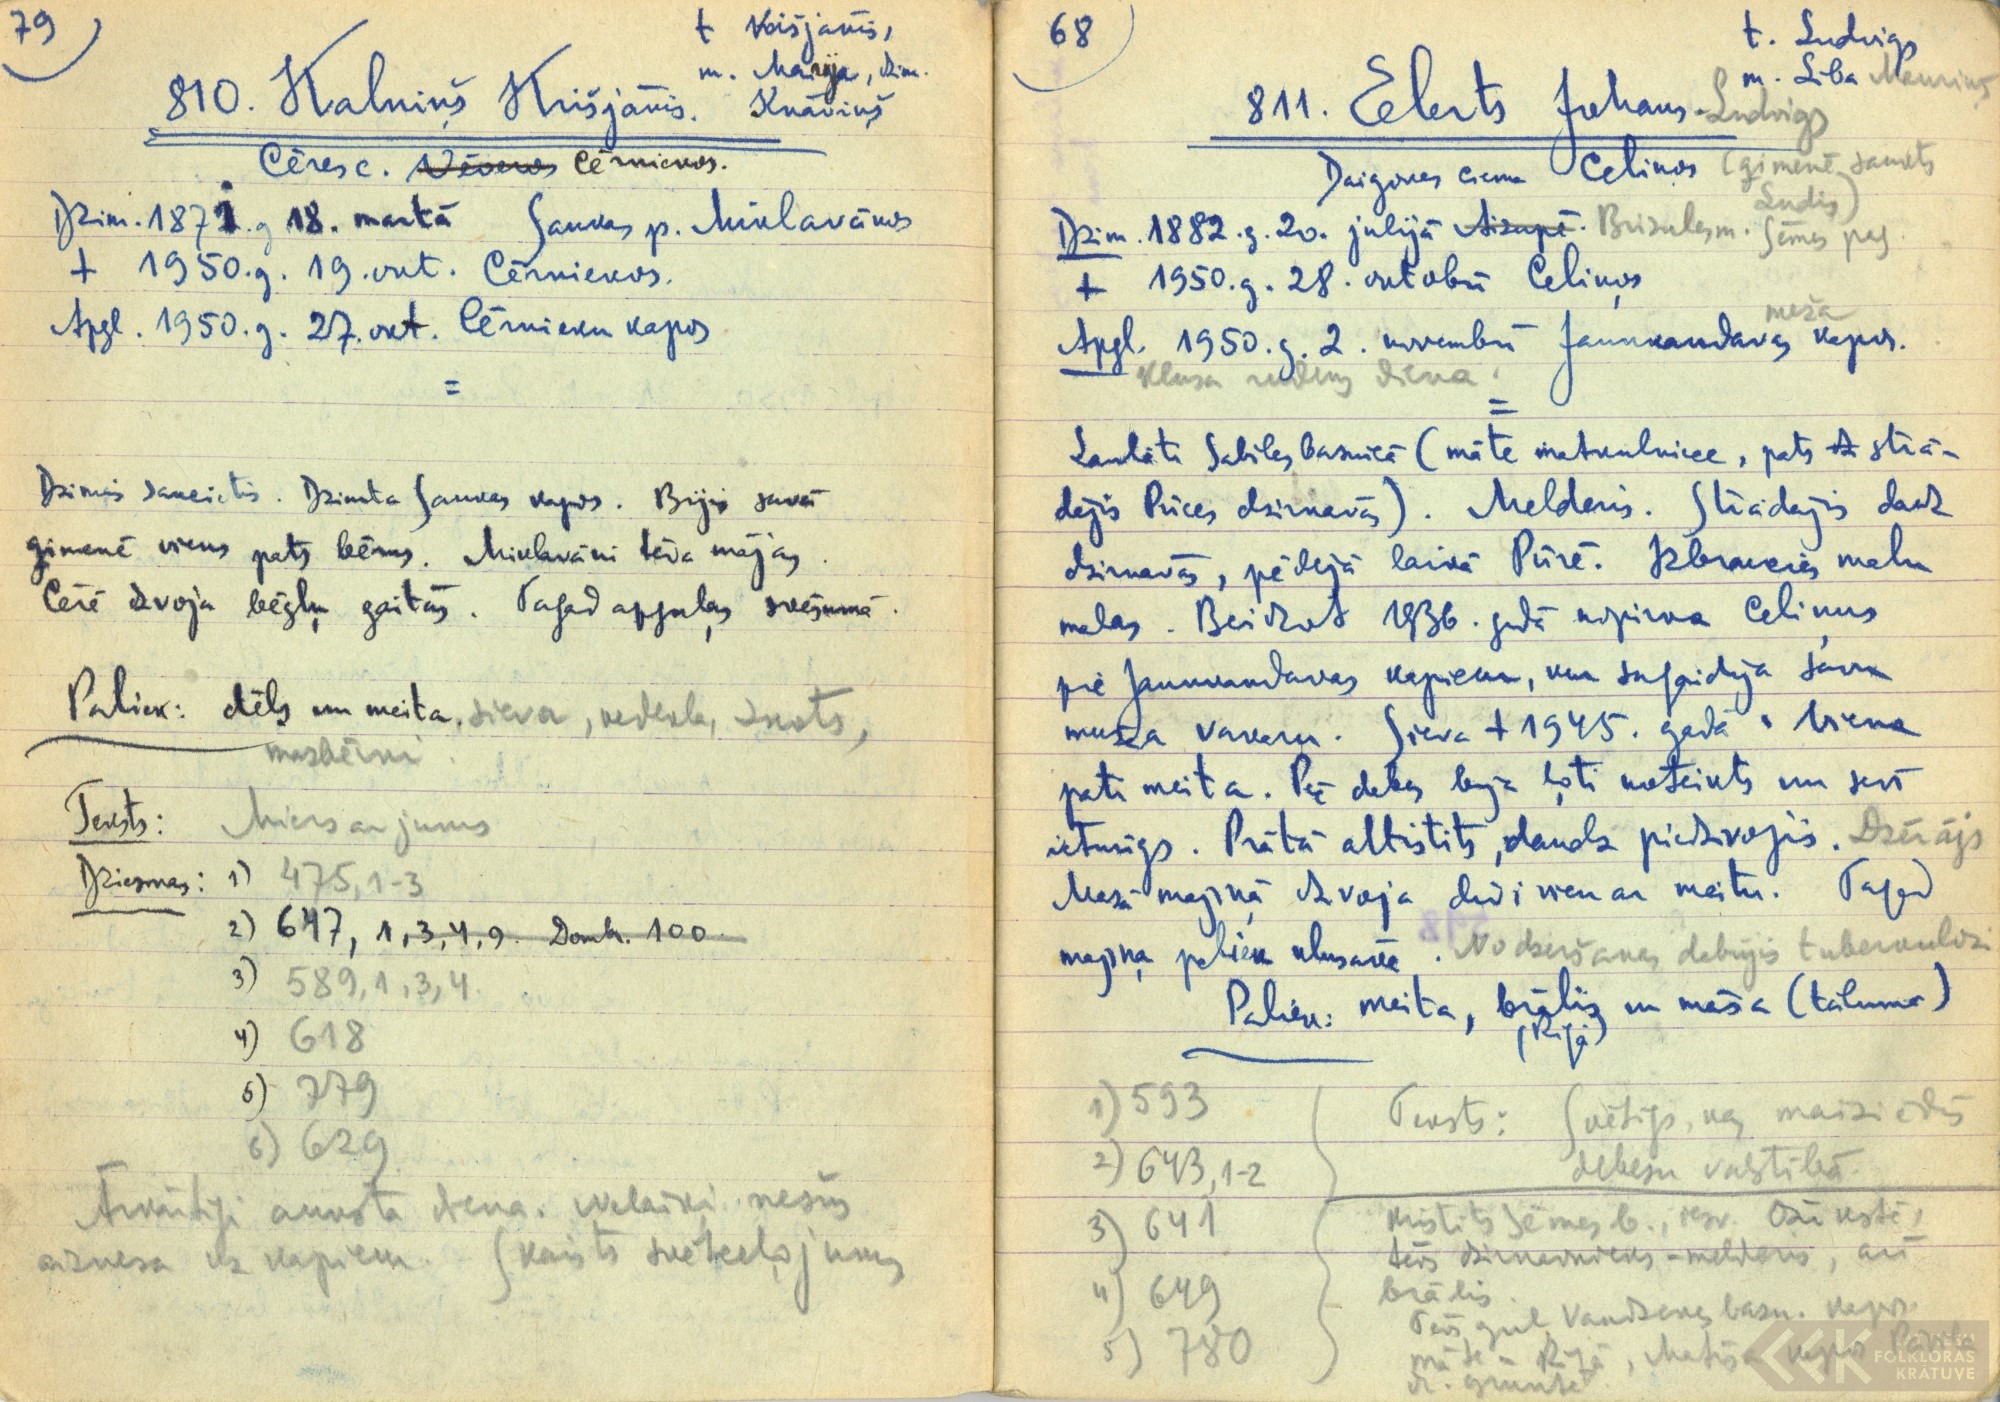 79
t Krišjānis,
m. Marija, dzim.
Knāviņš
810. Kalniņš Krišjānis.
Cēres c. Cērniekos.
Dzim. 1871.g 18. martā Saukas p. Miklavānos
+ 1950.g. 19.okt. Cērniekos.
Apgl. 1950.g. 27.okt. Cērnieku kapos
=
Dzimis saucietis. Dzimta Saukas kapos. Bijis savā
ģimenē viens pats bērns. Miklavāni tēva mājas.
Cērē dzvoja bēgļu gaitās. Tagad apguļas svešumā.
Paliek: dēls un meita, sieva, vedekla, znots,
mazbērni.
Teksts: Miers ar jums
Dziesmas: 1) 475, 1-3
2) 647, 1, 3, 4, 9. Domb. 100
3) 589, 1, 3, 4.
4) 618
5) 779
6) 629
Ārkārtīgi auksta diena. Nelaiķi nesūs
aiznesa uz kapiem. Skaists svētceļojums
68
t. Ludvigs
m. Lība Mauriņš
811. Elerts Johans-Ludvigs
Daigones ciema Celiņos (ģimenē saukts
Ludis)
Dzim. 1882.g. 20. jūlijā Aizupē. Brizules m. Sēmes pag.
+ 1950.g. 28. oktobrī Celiņos
meža
Apgl. 1950.g. 2. novembrī Jaunkandavas kapos.
Klusa rudens diena.
=
Laulāti Sabiles baznīcā (māte matkulniece, pats strā-
dājis Prīces dzirnavās). Melderis. Strādājis daudz
dzirnavās, pēdējā laikā Pūrē. Izbraucies malu
malas. Beidzot 1936. gadā nopirka Celiņus
pie Jaunkandavas kapiem, kur sagaidīja sava
muža vakaru. Sieva + 1945. gadā. Viena
pati meita. Pēc dabas bija ļoti noteikts un sevī
ieturīgs. Prātā attīstīts, daudz piedzīvojis. Dzērājs
Mazā mājiņā dzvoja divi vien ar meitu. Tagad
mājiņa paliek klusāka. No dzeršanas dabūjis tuberkulozi
Paliek: meita, brālis un māsa (tālumā)
(Rīgā)
1) 593
2) 643, 1-2
3) 641
4) 649
5) 780
Teksts: Svētīgs, kas maizi ēdīs
debesu valstībā.
Kristīts Sēmes b., iesv. Džūkstē,
tēvs dzirnavnieks-melderis, arī
brālis.
Tēvs guļ Vandzenes bazn. kapos.
māte - Rīgā, Matīsa kapos
LATVIEŠU
FOLKLORAS
KRĀTUVE